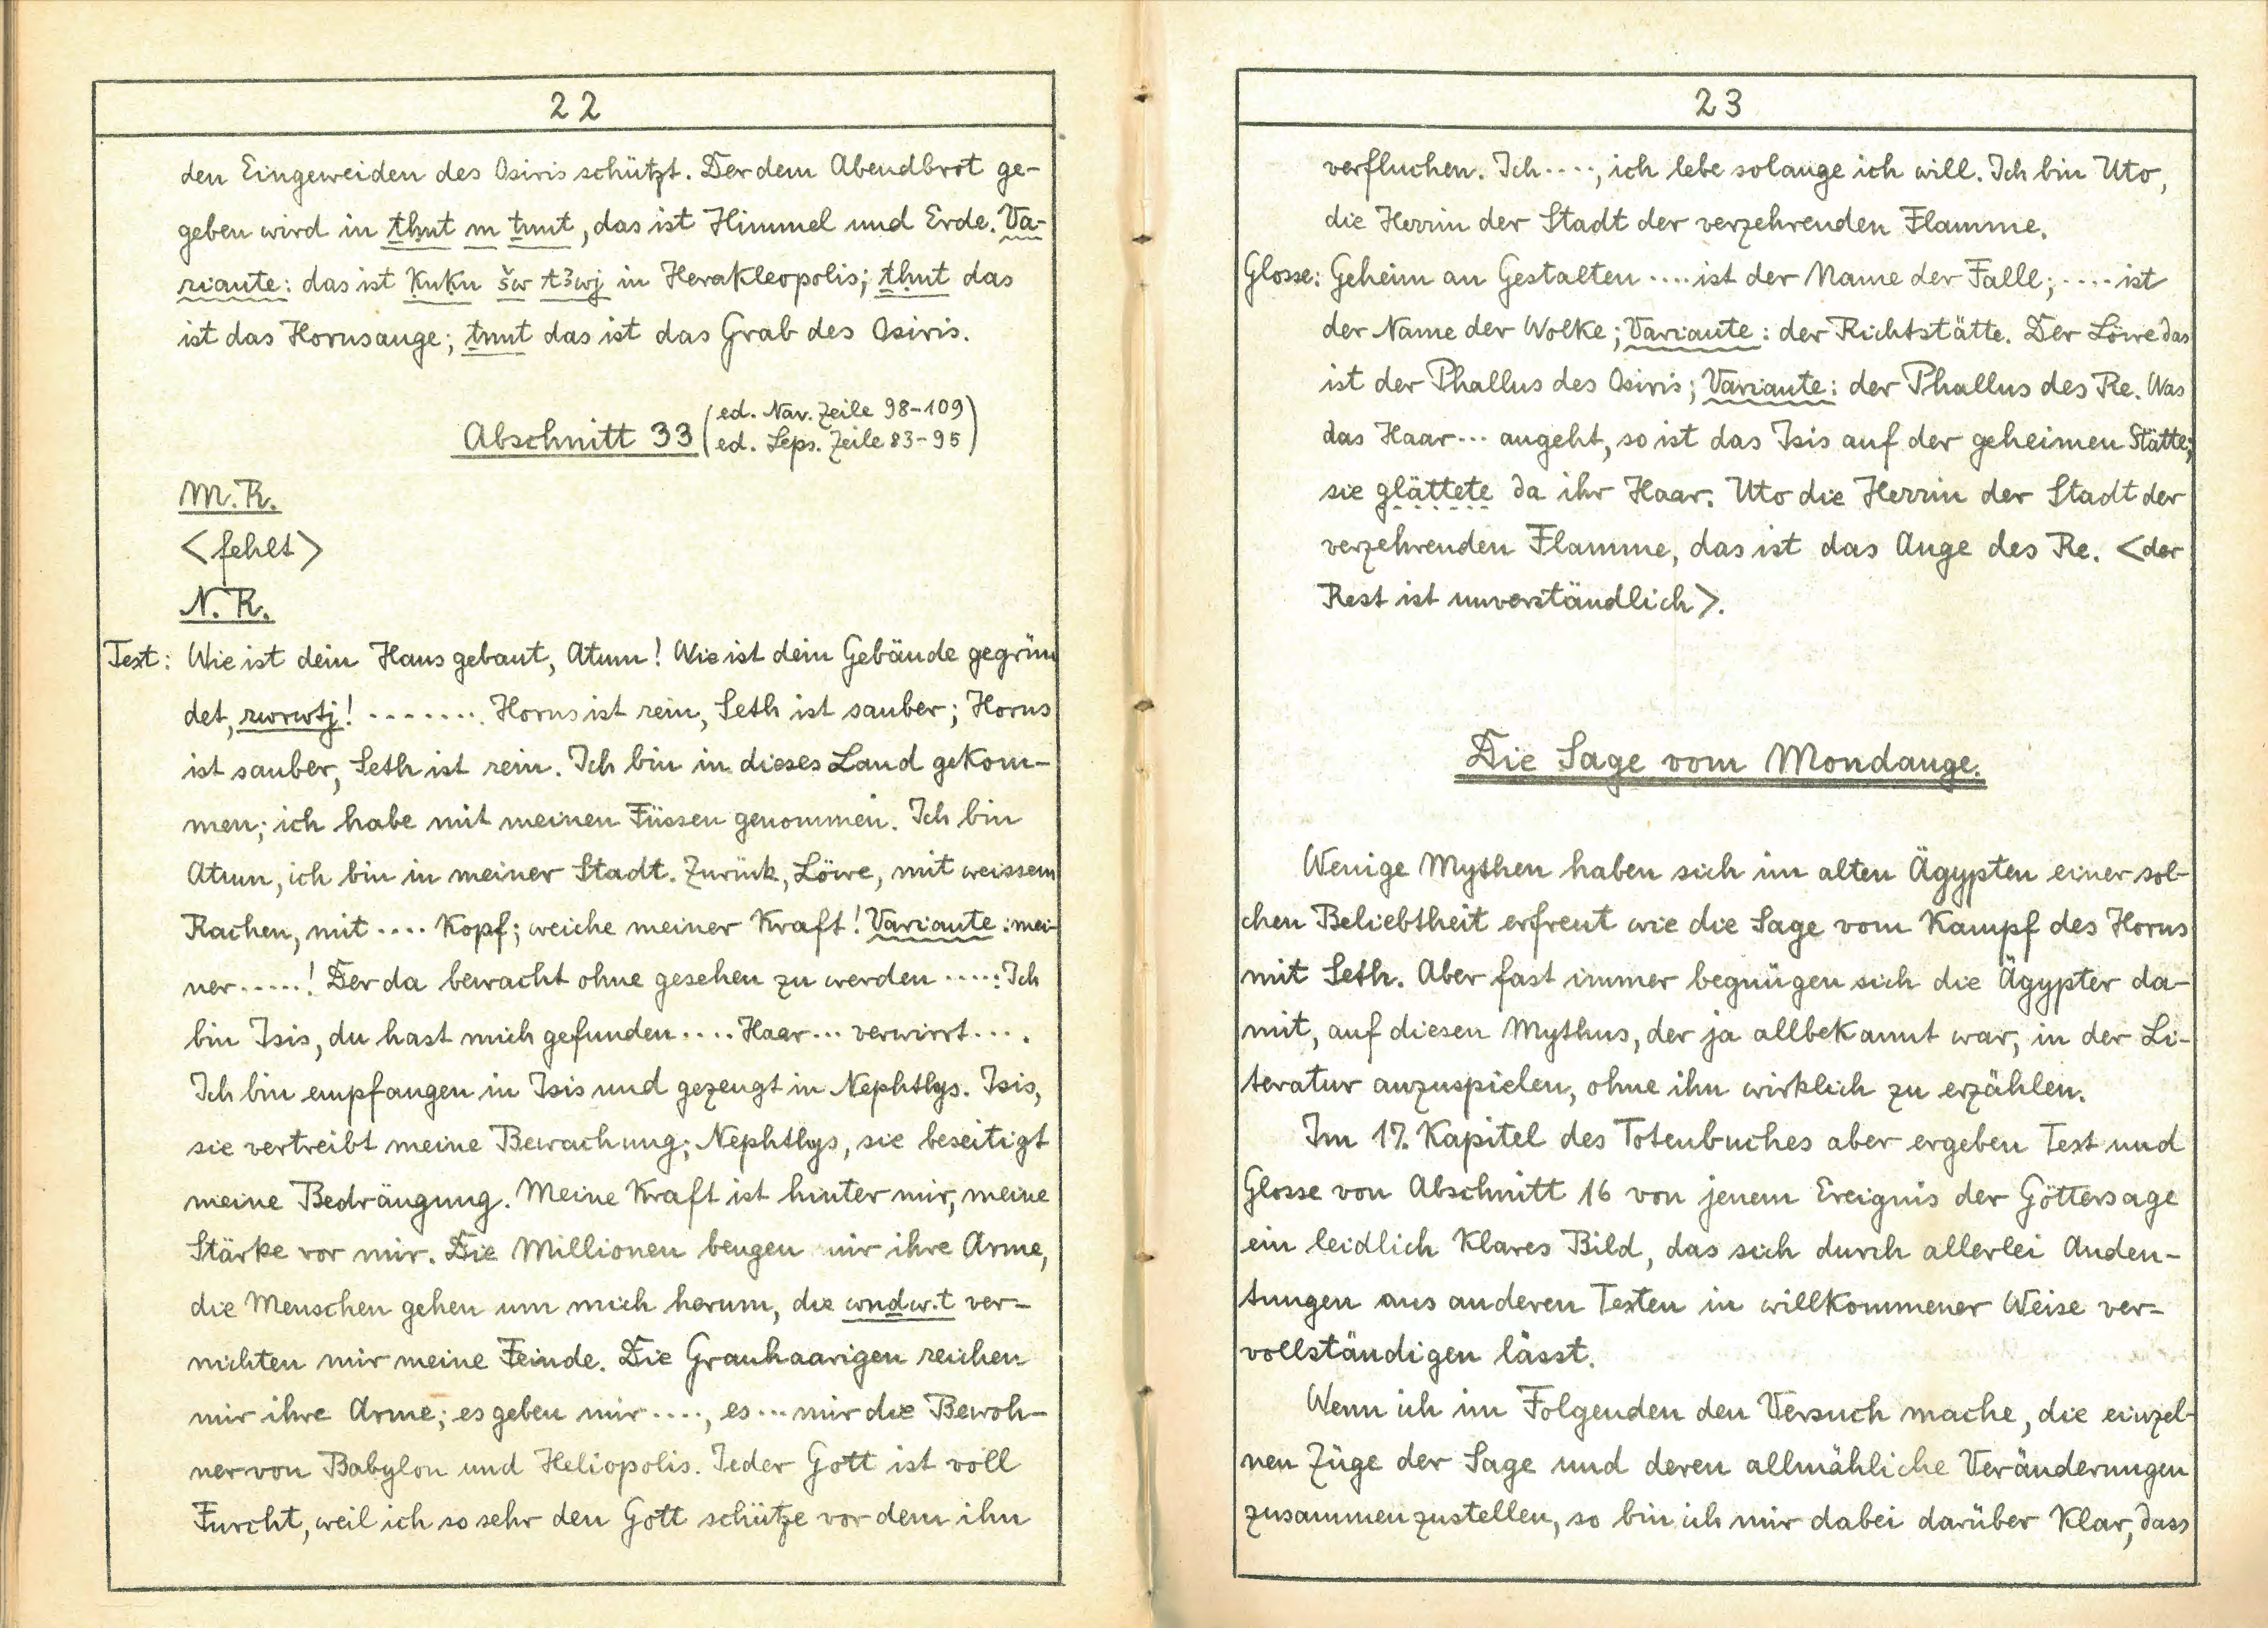 22
den Eingeweiden des Osiris schützt. Der dem Abendbrot ge-
geben wird in ṯḥnt m ṯnnt, das ist Himmel und Erde. Va-
riante: das ist ḳnḳn šw t3wj in Herakleopolis; ṯḥnt das
ist das Horusauge; ṯnnt das ist das Grab des Osiris.
Abschnitt 33 (ed. Nav. Zeile 98-109
ed. Leps. Zeile 83-95)
M.R.
<fehlt>
N.R.
Text: Wie ist dein Haus gebaut, Atum! Wie ist dein Gebäude gegrün
det, rwrwtj! ........ Horus ist rein, Seth ist sauber; Horus
ist sauber, Seth ist rein. Ich bin in dieses Land gekom-
men; ich habe mit meinen Füssen genommen. Ich bin
Atum, ich bin in meiner Stadt. Zurück, Löwe, mit weissem
Rachen, mit .... Kopf; weiche meiner Kraft! Variante: mei-
ner .....! Der da bewacht ohne gesehen zu werden .....: Ich
bin Isis, du hast mich gefunden .... Haar ... verwirrt ... .
Ich bin empfangen in Isis und gezeugt in Nephthys. Isis,
sie vertreibt meine Bewachung; Nephthys, sie beseitigt
meine Bedrängung. Meine Kraft ist hinter mir, meine
Stärke vor mir. Die Millionen beugen mir ihre Arme,
die Menschen gehen um mich herum, die wnḏw.t ver-
nichten mir meine Feinde. Die Grauhaarigen reichen
mir ihre Arme; es geben mir ...., es ... mir die Bewoh-
ner von Babylon und Heliopolis. Jeder Gott ist voll
Furcht, weil ich so sehr den Gott schütze vor dem ihn
23
verfluchen. Ich ...., ich lebe solange ich will. Ich bin Uto,
die Herrin der Stadt der verzehrenden Flamme.
Glosse: Geheim an Gestalten .... ist der Name der Falle; .... ist
der Name der Wolke; Variante: der Richtstätte. Der Löwe das
ist der Phallus des Osiris; Variante: der Phallus des Re. Was
das Haar ... angeht, so ist das Isis auf der geheimen Stätte;
sie glättete da ihr Haar. Uto die Herrin der Stadt der
verzehrenden Flamme, das ist das Auge des Re. <der
Rest ist unverständlich>.
Die Sage vom Mondauge.
Wenige Mythen haben sich im alten Ägypten einer sol-
chen Beliebtheit erfreut wie die Sage vom Kampf des Horus
mit Seth. Aber fast immer begnügen sich die Ägypter da-
mit, auf diesen Mythus, der ja allbekannt war, in der Li-
teratur anzuspielen, ohne ihn wirklich zu erzählen.
Im 17. Kapitel des Totenbuches aber ergeben Text und
Glosse von Abschnitt 16 von jenem Ereignis der Göttersage
ein leidlich klares Bild, das sich durch allerlei Andeu-
tungen aus anderen Texten in willkommener Weise ver-
vollständigen lässt.
Wenn ich im Folgenden den Versuch mache, die einzel-
nen Züge der Sage und deren allmähliche Veränderungen
zusammenzustellen, so bin ich mir dabei darüber klar, dass